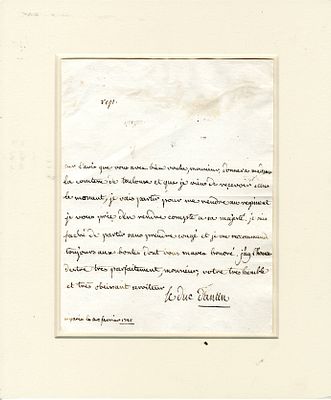 rept.
sur l'avis que vous avez bien voulu, monsieur, donner a madame
la comtesse de toulouse et que je viens de recevoir dans
le moment, je vais partir pour me rendre au regiment
je vous prie d'en rendre compte a sa majesté. je suis
faché de partir sans prendre congé et je me recommande
toujours aux bontés dont vous m'avez honoré. j'ay l'honneur
d'estre tres parfaitement, monsieur, votre tres humble
et tres obeissant serviteur
le duc d'antin
a paris le 20 fevrier